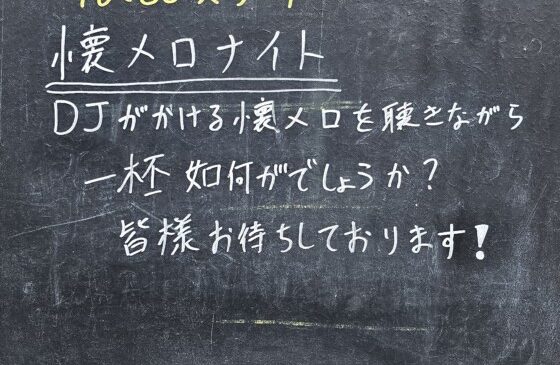 懐メロナイト
DJがかける懐メロを聴きながら
一杯如何がでしょうか?
皆様お待ちしております!